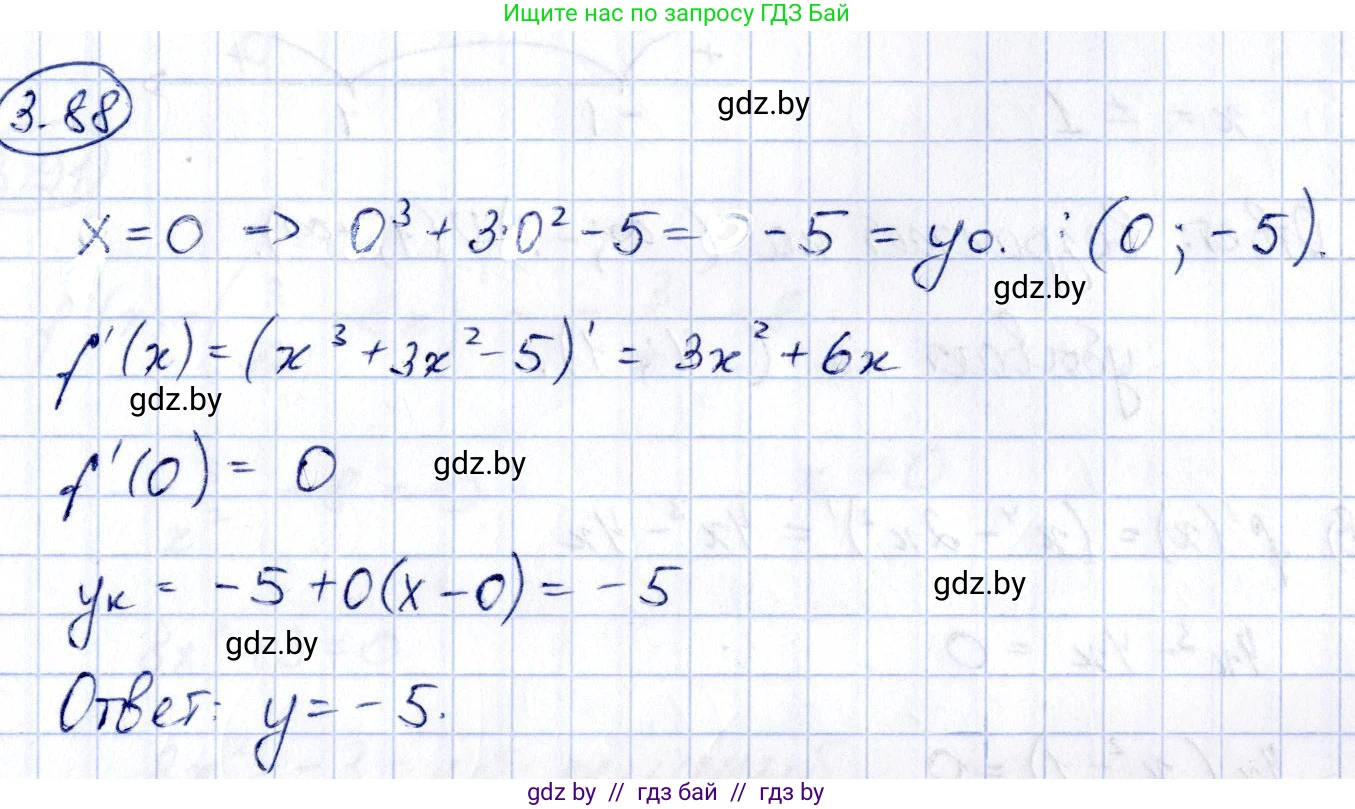 Ищите нас по запросу ГДЗ Бай
3.88
gdz.by
x = 0 => 0³ + 3·0² - 5 = -5 = y0. : (0 ; -5).
gdz.by
f'(x) = (x³ + 3x² - 5)' = 3x² + 6x
gdz.by
f'(0) = 0
gdz.by
yк = -5 + 0(x - 0) = -5
gdz.by
gdz.by
Ответ: y = -5.
gdz.by // гдз бай // гдз by